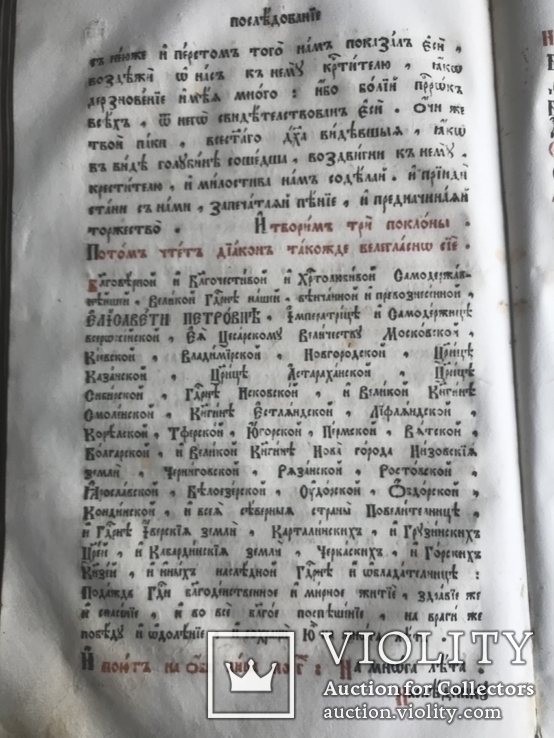 послѣдованїе
съ неюже и҆ перстомъ того̀ на́мъ показа́лъ є҆сѝ ,
воздѣжѝ ѡ҆ на́съ къ немꙋ̀ крⷭ҇ти́телю , ꙗ҆́кѡ
дерзнове́нїе и҆мѣ́ѧ мно́го : и҆́бо бо́лїй прⷪ҇рѡ́къ
всѣ́хъ , ѿ негѡ̀ свидѣ́тельствованъ є҆сѝ . Ѻ҆́чи же
твоѝ па́ки , всест҃а́го дх҃а ви́дѣвшыѧ , ꙗ҆́кѡ
въ ви́дѣ голꙋби́нѣ соше́дша , воздви́гни къ немꙋ̀ ,
крести́телю , и҆ ми́лостива на́мъ содѣ́лай . и҆ прїидѝ
ста́ни съ на́ми , запечатлѣ́ѧй пѣ́нїе , и҆ предначина́ѧй
торжество̀ . И҆ твори́мъ трѝ покло́ны .
Пото́мъ чте́тъ дїа́конъ та́кожде велегла́снѡ сїѐ .
Бл҃говѣ́рной и҆ Бл҃гочести́вой и҆ Хрⷭ҇толюби́вой Самодержав-
нѣ́йшей , Вели́кой Гдⷭ҇рнѣ на́шей , вѣнча́нной и҆ превознесе́нной ,
ЄЛИСАВЕТИ ПЕТРОВНѢ , И҆мпера́трицѣ и҆ Самоде́ржицѣ
всерѡссі́йской , Є҆ѧ̀ Цеса́рскомꙋ Вели́чествꙋ Моско́вской ,
Кі́евской , Влади́мїрской , Новгоро́дской , Цр҃и́цѣ
Каза́нской , Цр҃и́цѣ А҆страха́нской , Цр҃и́цѣ
Сиби́рской , Гдⷭ҇рнѣ Пско́вской , и҆ Вели́кой Кнг҃и́нѣ
Смоле́нской , Кнг҃и́нѣ Є҆стлѧ́ндской , Лїфлѧ́ндской ,
Коре́лской , Тфе́рской , Ю҆го́рской , Пе́рмской , Вѧ́тской ,
Болга́рской , и҆ Вели́кой Кнг҃и́нѣ Но́ва го́рода Низо́вскїѧ
землѝ , Черни́говской , Рѧза́нской , Росто́вской ,
Ꙗ҆росла́вской , Бѣлоѻзе́рской , Оу҆до́рской , Ѻ҆бдо́рской ,
Конді́нской , и҆ всеѧ̀ сѣ́верныѧ страны̀ Повели́телницѣ ,
и҆ Гдⷭ҇рнѣ И҆́верскїѧ землѝ , Картали́нскихъ , и҆ Грꙋзи́нскихъ
Цр҃е́й , и҆ Кабарди́нскїѧ землѝ , Черка́скихъ , и҆ Го́рскихъ
Кнѧзе́й , и҆ и҆ны́хъ наслѣ́дной Гдⷭ҇рнѣ и҆ ѡ҆блада́телницѣ :
Пода́ждь Гдⷭ҇и благоде́нственное и҆ ми́рное житїѐ , здра́вїе же
и҆ спⷭ҇е́нїе , и҆ во все́мъ благо́е поспѣше́нїе , на врагѝ же
побѣ́дꙋ и҆ ѡ҆долѣ́нїе
И҆ пою́тъ на На мнѡ́га лѣ̑та .
VIOLITY
Auction for Collectors
auction.violity.com